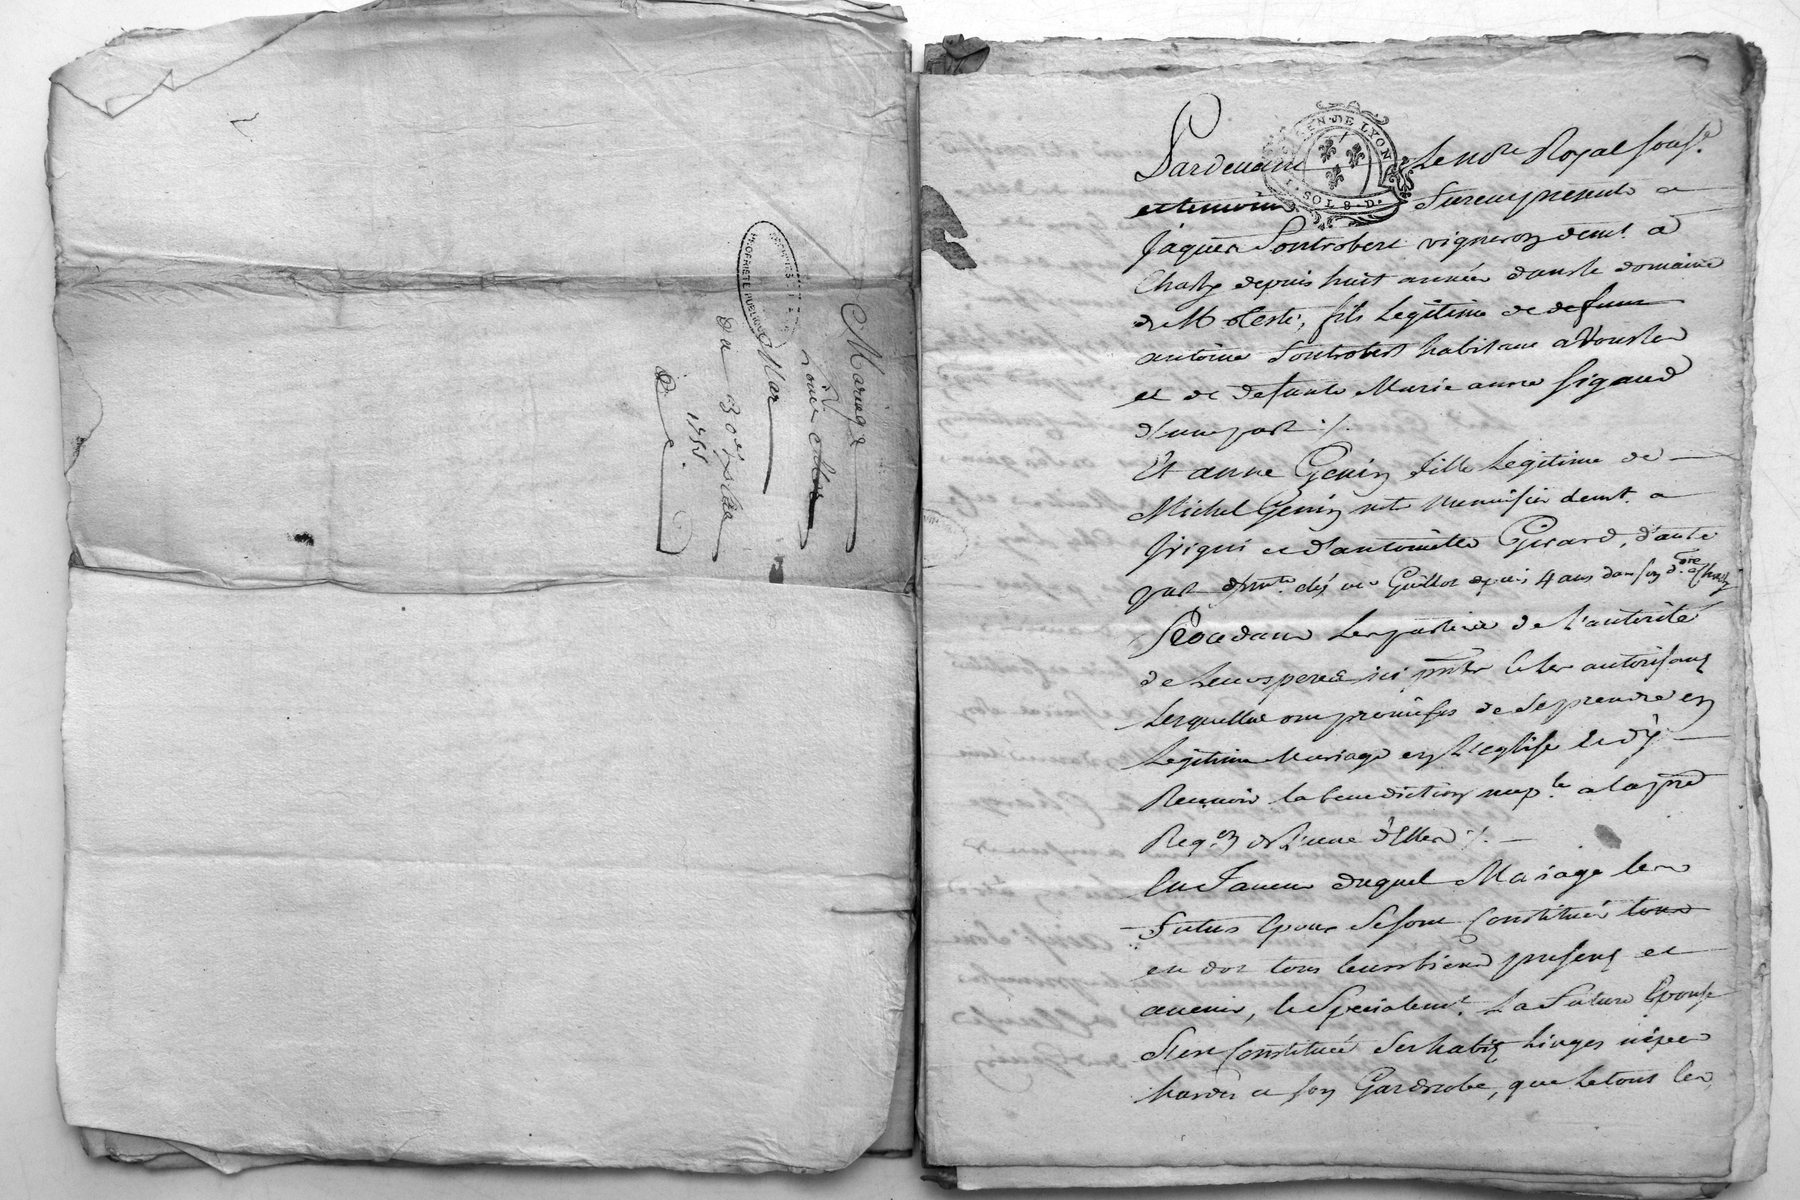 Mariage
Mar
du 30 xbre
1755
ARCHIVES
PROPRIETE PUBLIQUE
GEN. DE LYON
1. SOL 8. D.
Pardevant Le Nore Royal sousé.
et temoins furent present
Jaques Sontrobert vigneron demt. à
Chasly depuis huit année dans le domaine
de M. Teste, fils Legitime de defunt
antoine Sontrobert habitant a Vourles
et de defunte Marie anne Sigaud
d'une part ./.
Et anne Genin fille Legitime de
Michel Genin mtre Menuisier demt. a
Irigni et d'antoinette Girard, d'autre
part demte. chés mr Guillot depuis 4 ans dans son dne a Chasly
Procedant Les parties de l'autorité
de Leurs peres ici pnts et Les autorisant
Lesquelles ont promises de Se prendre en
Legitime Mariage en L'eglise et d'y
Recevoir la benediction nuple a la pre
Reqon de L'une d'Elles ./.
En Faveur duquel Mariage les
Futurs Epoux se sont Constitués tous
en dot tous leurs biens presens et
avenir, et Specialemt. La Future Epouse
S'est Constituée Ses habits Linges nipes
hardes et son Garderobe, que Le tout les